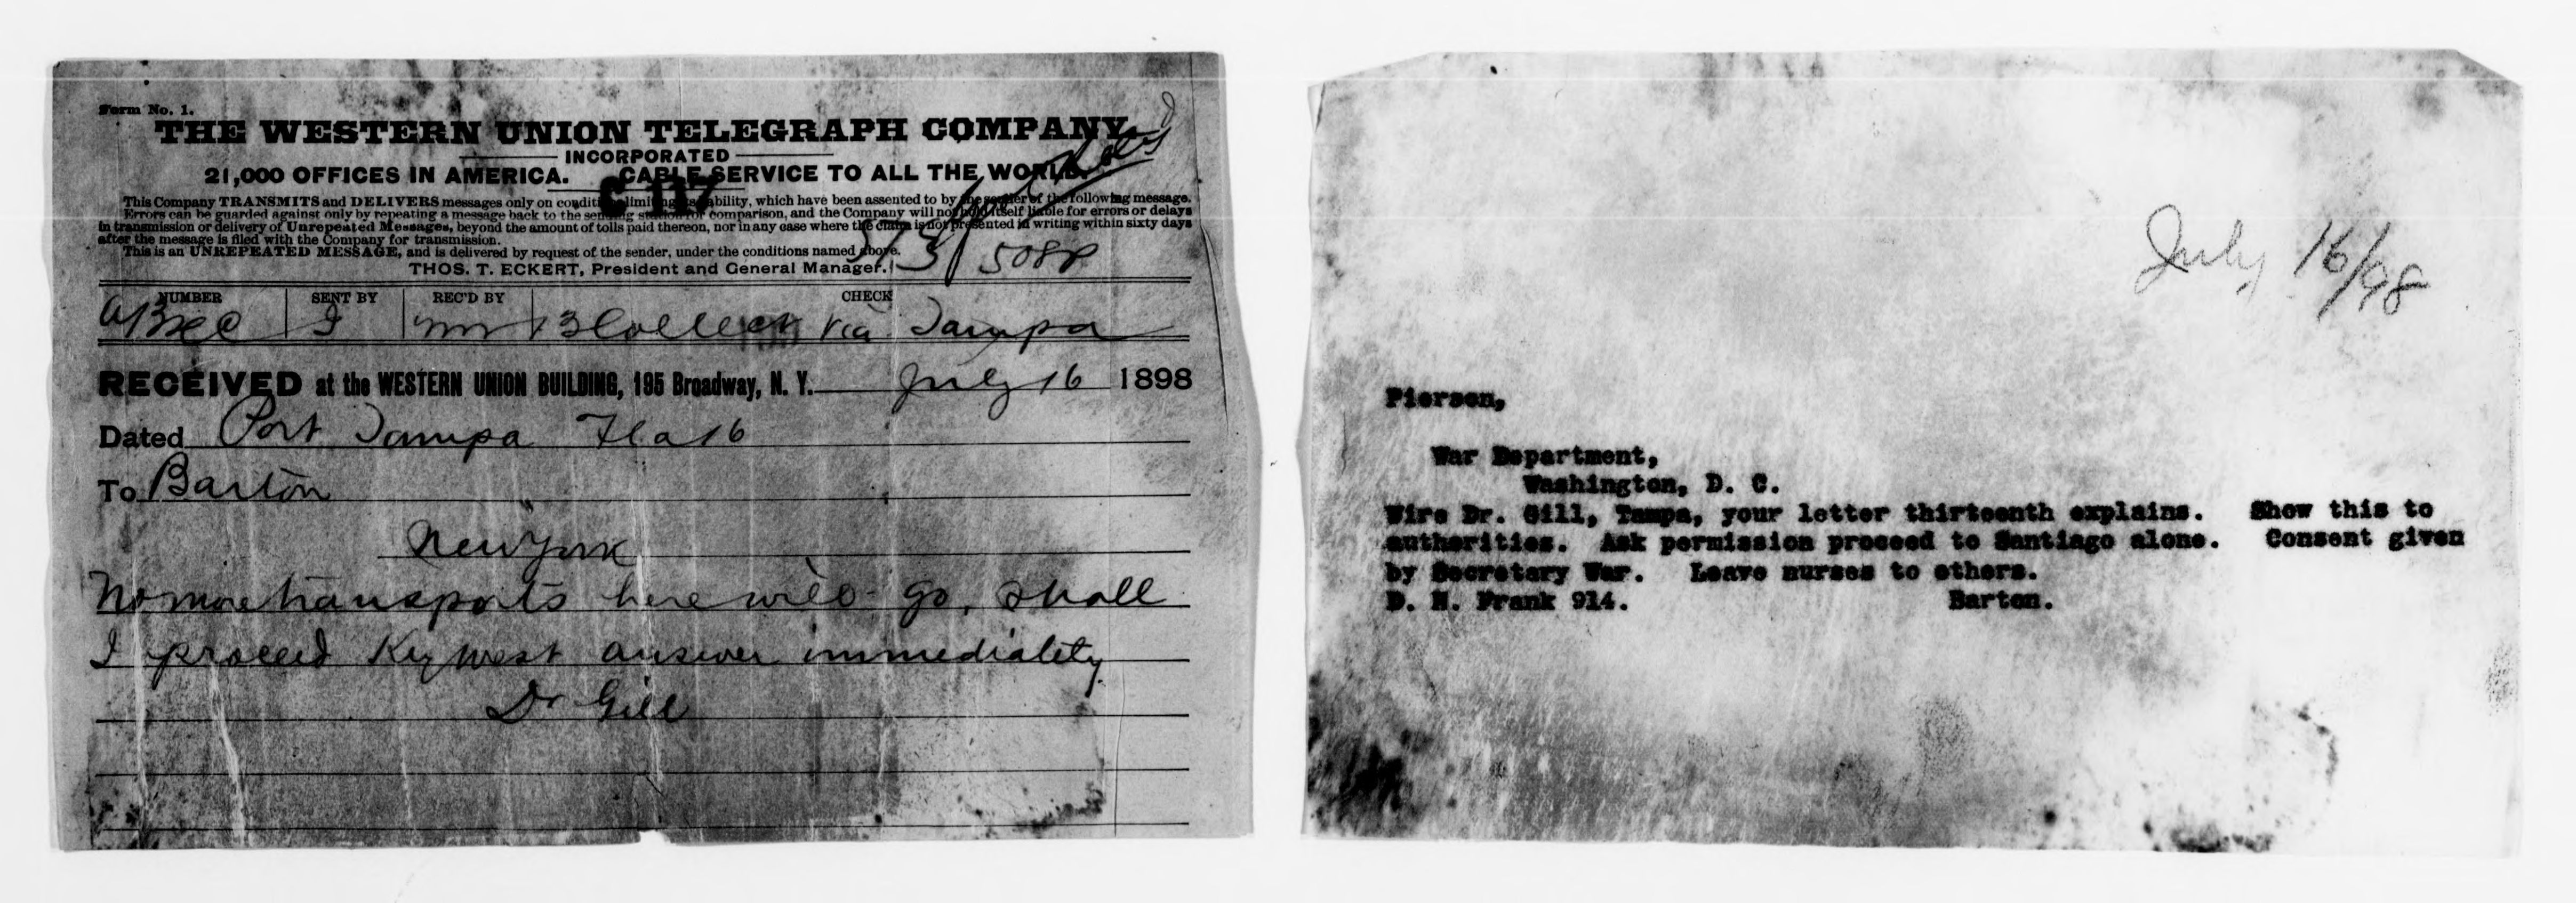 Form No. 1.
THE WESTERN UNION TELEGRAPH COMPANY.
INCORPORATED
21,000 OFFICES IN AMERICA. CABLE SERVICE TO ALL THE WORLD.
C 117
This Company TRANSMITS and DELIVERS messages only on conditions limiting its liability, which have been assented to by the sender of the following message.
Errors can be guarded against only by repeating a message back to the sending station for comparison, and the Company will not hold itself liable for errors or delays
in transmission or delivery of Unrepeated Messages, beyond the amount of tolls paid thereon, nor in any case where the claim is not presented in writing within sixty days
after the message is filed with the Company for transmission.
This is an UNREPEATED MESSAGE, and is delivered by request of the sender, under the conditions named above.
THOS. T. ECKERT, President and General Manager.
508P
NUMBER SENT BY REC'D BY CHECK
13 Collect via Tampa
RECEIVED at the WESTERN UNION BUILDING, 195 Broadway, N. Y. July 16 1898
Dated Port Tampa Fla 16
To Barton
New York
No more transports here will go, shall
I proceed Key West answer immediately
Dr Gill
July 16/98
Pierson,
War Department,
Washington, D. C.
Wire Dr. Gill, Tampa, your letter thirteenth explains. Show this to
authorities. Ask permission proceed to Santiago alone. Consent given
by Secretary War. Leave nurses to others.
D. H. Frank 914. Barton.